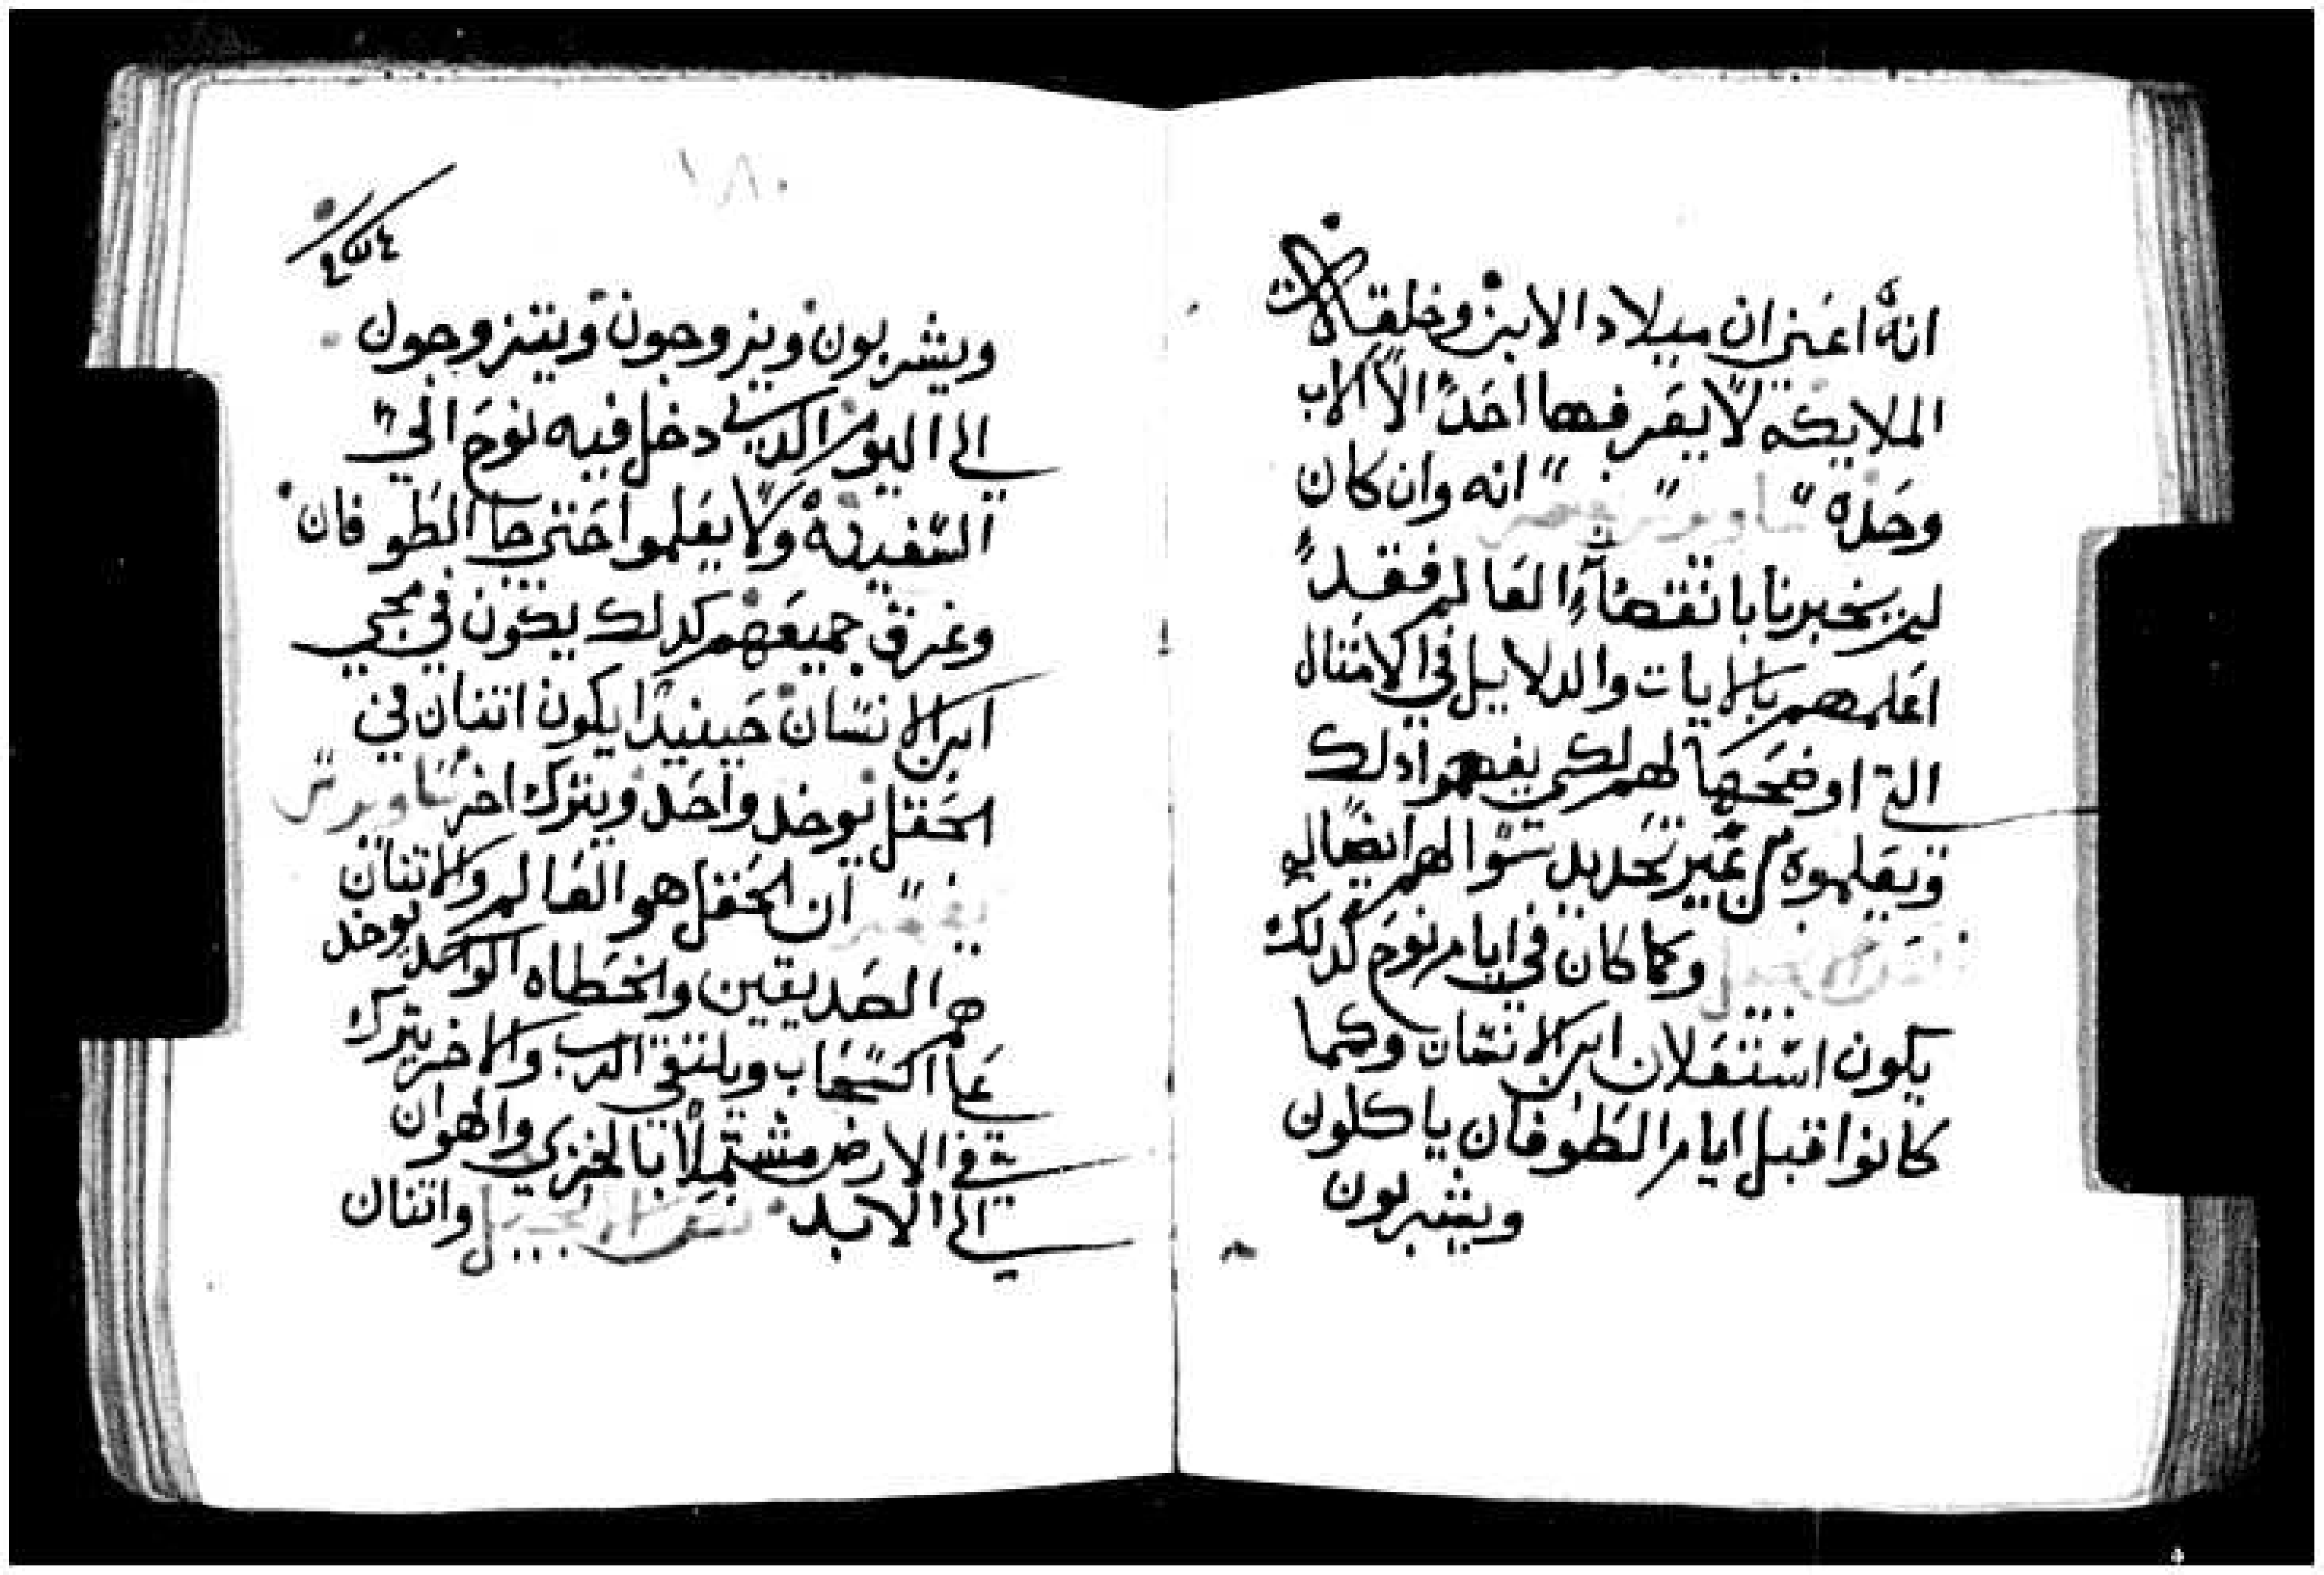 انه اعني ان ميلاد الابن وخلقة
الملايكه لا يعرفها احد الا الاب
وحده انه وان كان
لم يخبرنا بانقضاء العالم فقد
اعلمهم بالايات والدلايل في الامثال
التي اوضحها لهم لكي يفهموا دلك
ويعلموه من غير تجديد سوالهم ايضا له
وكما كان في ايام نوح كدلك
يكون استعلان ابن الانسان وكما
كانوا قبل ايام الطوفان ياكلون
ويشربون
١٨٠
ويشربون ويزوجون ويتزوجون
الى اليوم الدي دخل فيه نوح الي
السفينة ولا يعلموا حتى جا الطوفان
وغرق جميعهم كدلك يكون في مجي
ابن الانسان حينيدا يكون اتنان في
الحقل يوخد واحد ويترك اخر ساويرس
يفسر ان الحقل هو العالم والاتنان
هم الصديقين والخطاه الواحد يوخد
على السحاب ويلتقي الرب والاخر يترك
في الارض مشتملا بالخزي والهوان
الى الابد نص الانجيل واتنان